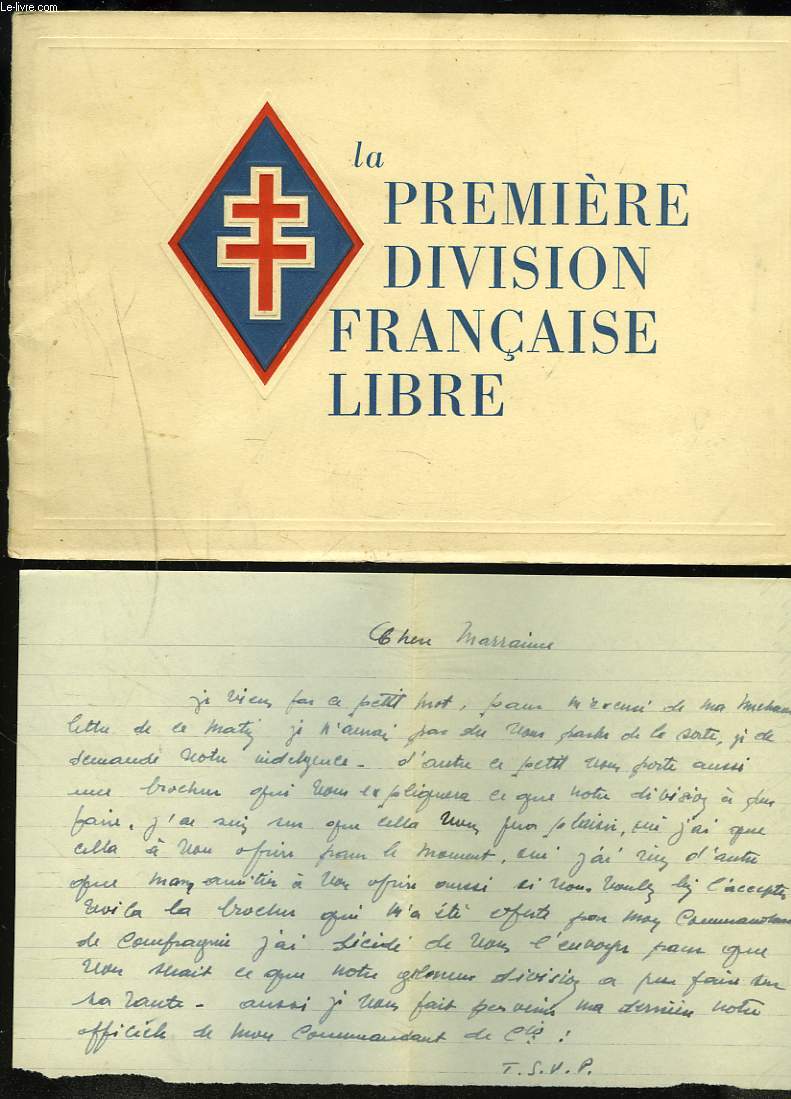 Le-livre.com
la
PREMIÈRE
DIVISION
FRANÇAISE
LIBRE
Chere Marraine
je viens par ce petit mot, pour m'excusé de ma
lettre de ce matin je n'aurai pas du vous parler de la sorte, je
demande votre indulgence - d'autre ce petit vous porte aussi
une brochur qui vous expliquera ce que notre division à pus
faire, j'ai que
cella à vous ofrire pour le moment, j'ai rien d'autre
que mon amitier à vous ofrire aussi si vous voulez bien l'accepter
voila la brochur qui m'a été oferte par mon Commandant
de Compagnie j'ai décidé de vous l'envoyer pour que
vous ce que notre division a pus faire sur
sa route - aussi je vous fait parvenir ma dernière notte
officièle de mon Commandant de Cie !
T.S.V.P.